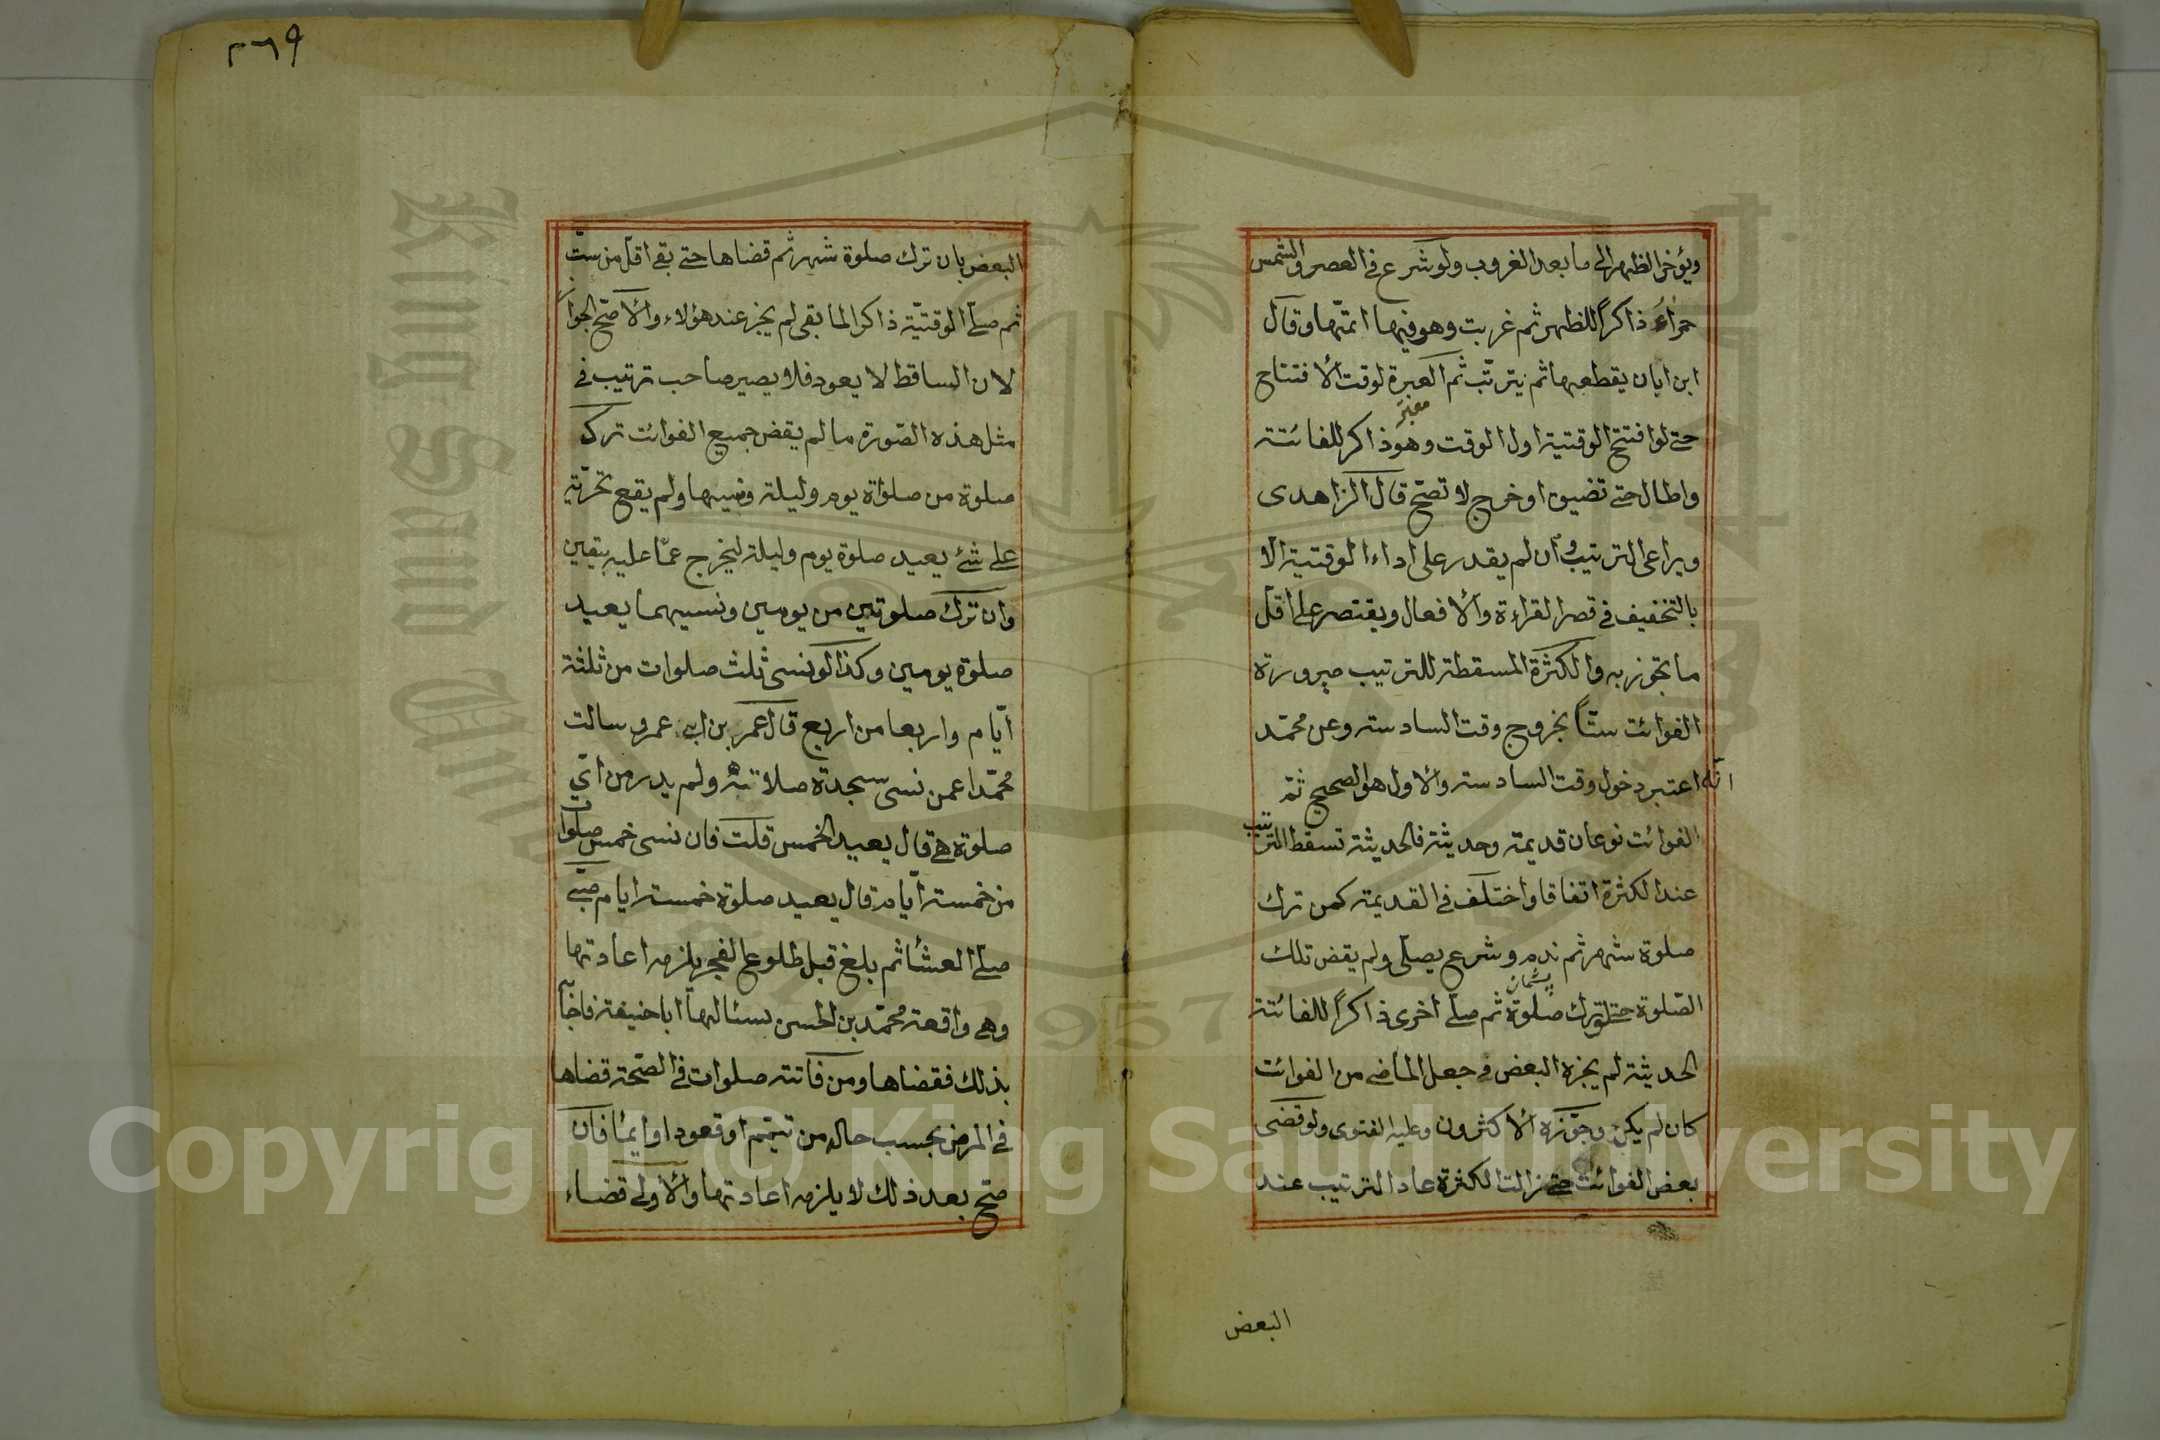 ويؤخر الظهر الى ما بعد الغروب ولو شرع في العصر والشمس
حمراء ذاكراً للظهر ثم غربت وهو فيها اتمّها وقال
ابن ابان يقطعها ثم يترتّب ثم العبرة لوقت الافتتاح
معتبر
حتى لو افتتح الوقتية اول الوقت وهو ذاكر للفائتة
واطال حتى تضيق او خرج لا تصحّ قال الزاهدى
ويراعى الترتيب وان لم يقدر على اداء الوقتية الا
بالتخفيف في قصر القراءة والافعال ويقتصر على اقل
ما تجوز به والكثرة المسقطة للترتيب صيرورة
الفوائت ستّاً بخروج وقت السادسة وعن محمّد
انّه اعتبر دخول وقت السادسة والاول هو الصحيح ثمّ
الفوائت نوعان قديمة وحديثة فالحديثة تسقط الترتيب
عند الكثرة اتفاقا واختلف في القديمة كمن ترك
صلوة شهر ثم ندم وشرع يصلّى ولم يقض تلك
پشمان
الصّلوة حتى لو ترك صلوة ثم صلّى اخرى ذاكراً للفائتة
الحديثة لم يجزه البعض وجعل الماضى من الفوائت
كان لم يكن وجوّزه الاكثرون وعليه الفتوى ولو قضى
بعض الفوائت حتى زالت الكثرة عاد الترتيب عند
البعض
٣٦٩
البعض بان ترك صلوة شهر ثم قضاها حتى بقى اقلّ من ستّ
ثم صلّى الوقتيّة ذاكرا لما بقى لم يجز عند هؤلاء والاصحّ الجوا
لان الساقط لا يعود فلا يصير صاحب ترتيب في
مثل هذه الصّورة ما لم يقض جميع الفوائت ترك
صلوة من صلواة يوم وليلة ونسيها ولم يقع تحرّيه
على شئ يعيد صلوة يوم وليلة ليخرج عمّا عليه بيقين
وان ترك صلوتين من يومين ونسيهما يعيد
صلوة يومين وكذا لو نسى ثلث صلوات من ثلثة
ايّام واربعا من اربع قال عمر بن ابى عمرو سالت
محمّدا عمن نسى سجدة صلاتيّة ولم يدر من اىّ
صلوة هى قال يعيد الخمس قلت فان نسى خمس صلوا
من خمسة ايّام قال يعيد صلوة خمسة ايام صبّى
صلّى العشا ثم بلغ قبل طلوع الفجر يلزمه اعادتها
وهى واقعة محمّد بن الحسن سئالها ابا حنيفة فاجا
بذلك فقضاها ومن فاتته صلوات في الصّحة قضاها
في المرض بحسب حاله من تيمّم او قعود او ايما فان
صحّ بعد ذلك لا يلزمه اعادتها والاولى قضاء
King Saud University
1957
Copyright © King Saud University